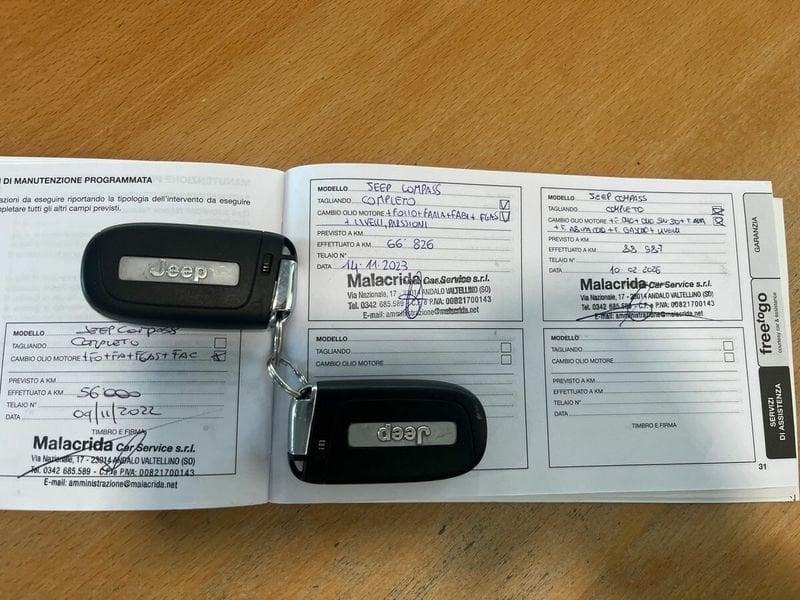 I DI MANUTENZIONE PROGRAMMATA
azioni da eseguire riportando la tipologia dell'intervento da eseguire
pletare tutti gli altri campi previsti.
Jeep
MODELLO JEEP COMPASS
TAGLIANDO COMPLETO
CAMBIO OLIO MOTORE +FO+FA+FGAS+FAC
PREVISTO A KM
EFFETTUATO A KM 56'000
TELAIO N°
DATA 09/11/2022
TIMBRO E FIRMA
Malacrida Car Service s.r.l.
Via Nazionale, 17 - 23014 ANDALO VALTELLINO (SO)
Tel. 0342 685.589 - C.F. e P.IVA: 00821700143
E-mail: amministrazione@malacrida.net
MODELLO JEEP COMPASS
TAGLIANDO COMPLETO
CAMBIO OLIO MOTORE
+ LIVELLI,
PREVISTO A KM
EFFETTUATO A KM 66'826
TELAIO N°
DATA 14.11.2023
Malacrida Car Service s.r.l.
Via Nazionale, 17 - 23014 ANDALO VALTELLINO (SO)
Tel. 0342 685.589 - C.F. e P.IVA: 00821700143
E-mail: amministrazione@malacrida.net
MODELLO JEEP COMPASS
TAGLIANDO COMPLETO
CAMBIO OLIO MOTORE
PREVISTO A KM
EFFETTUATO A KM 88 987
TELAIO N°
DATA
Malacrida Car Service s.r.l.
Via Nazionale, 17 - 23014 ANDALO VALTELLINO (SO)
Tel. 0342 685.589 - C.F. e P.IVA: 00821700143
E-mail: amministrazione@malacrida.net
MODELLO
TAGLIANDO
CAMBIO OLIO MOTORE
PREVISTO A KM
EFFETTUATO A KM
Jeep
MODELLO
TAGLIANDO
CAMBIO OLIO MOTORE
PREVISTO A KM
EFFETTUATO A KM
TELAIO N°
DATA
TIMBRO E FIRMA
31
GARANZIA
freetogo
courtesy car & assistance
SERVIZI
DI ASSISTENZA